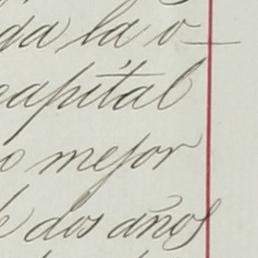 ga la o-
capital
o mejor
e dos años